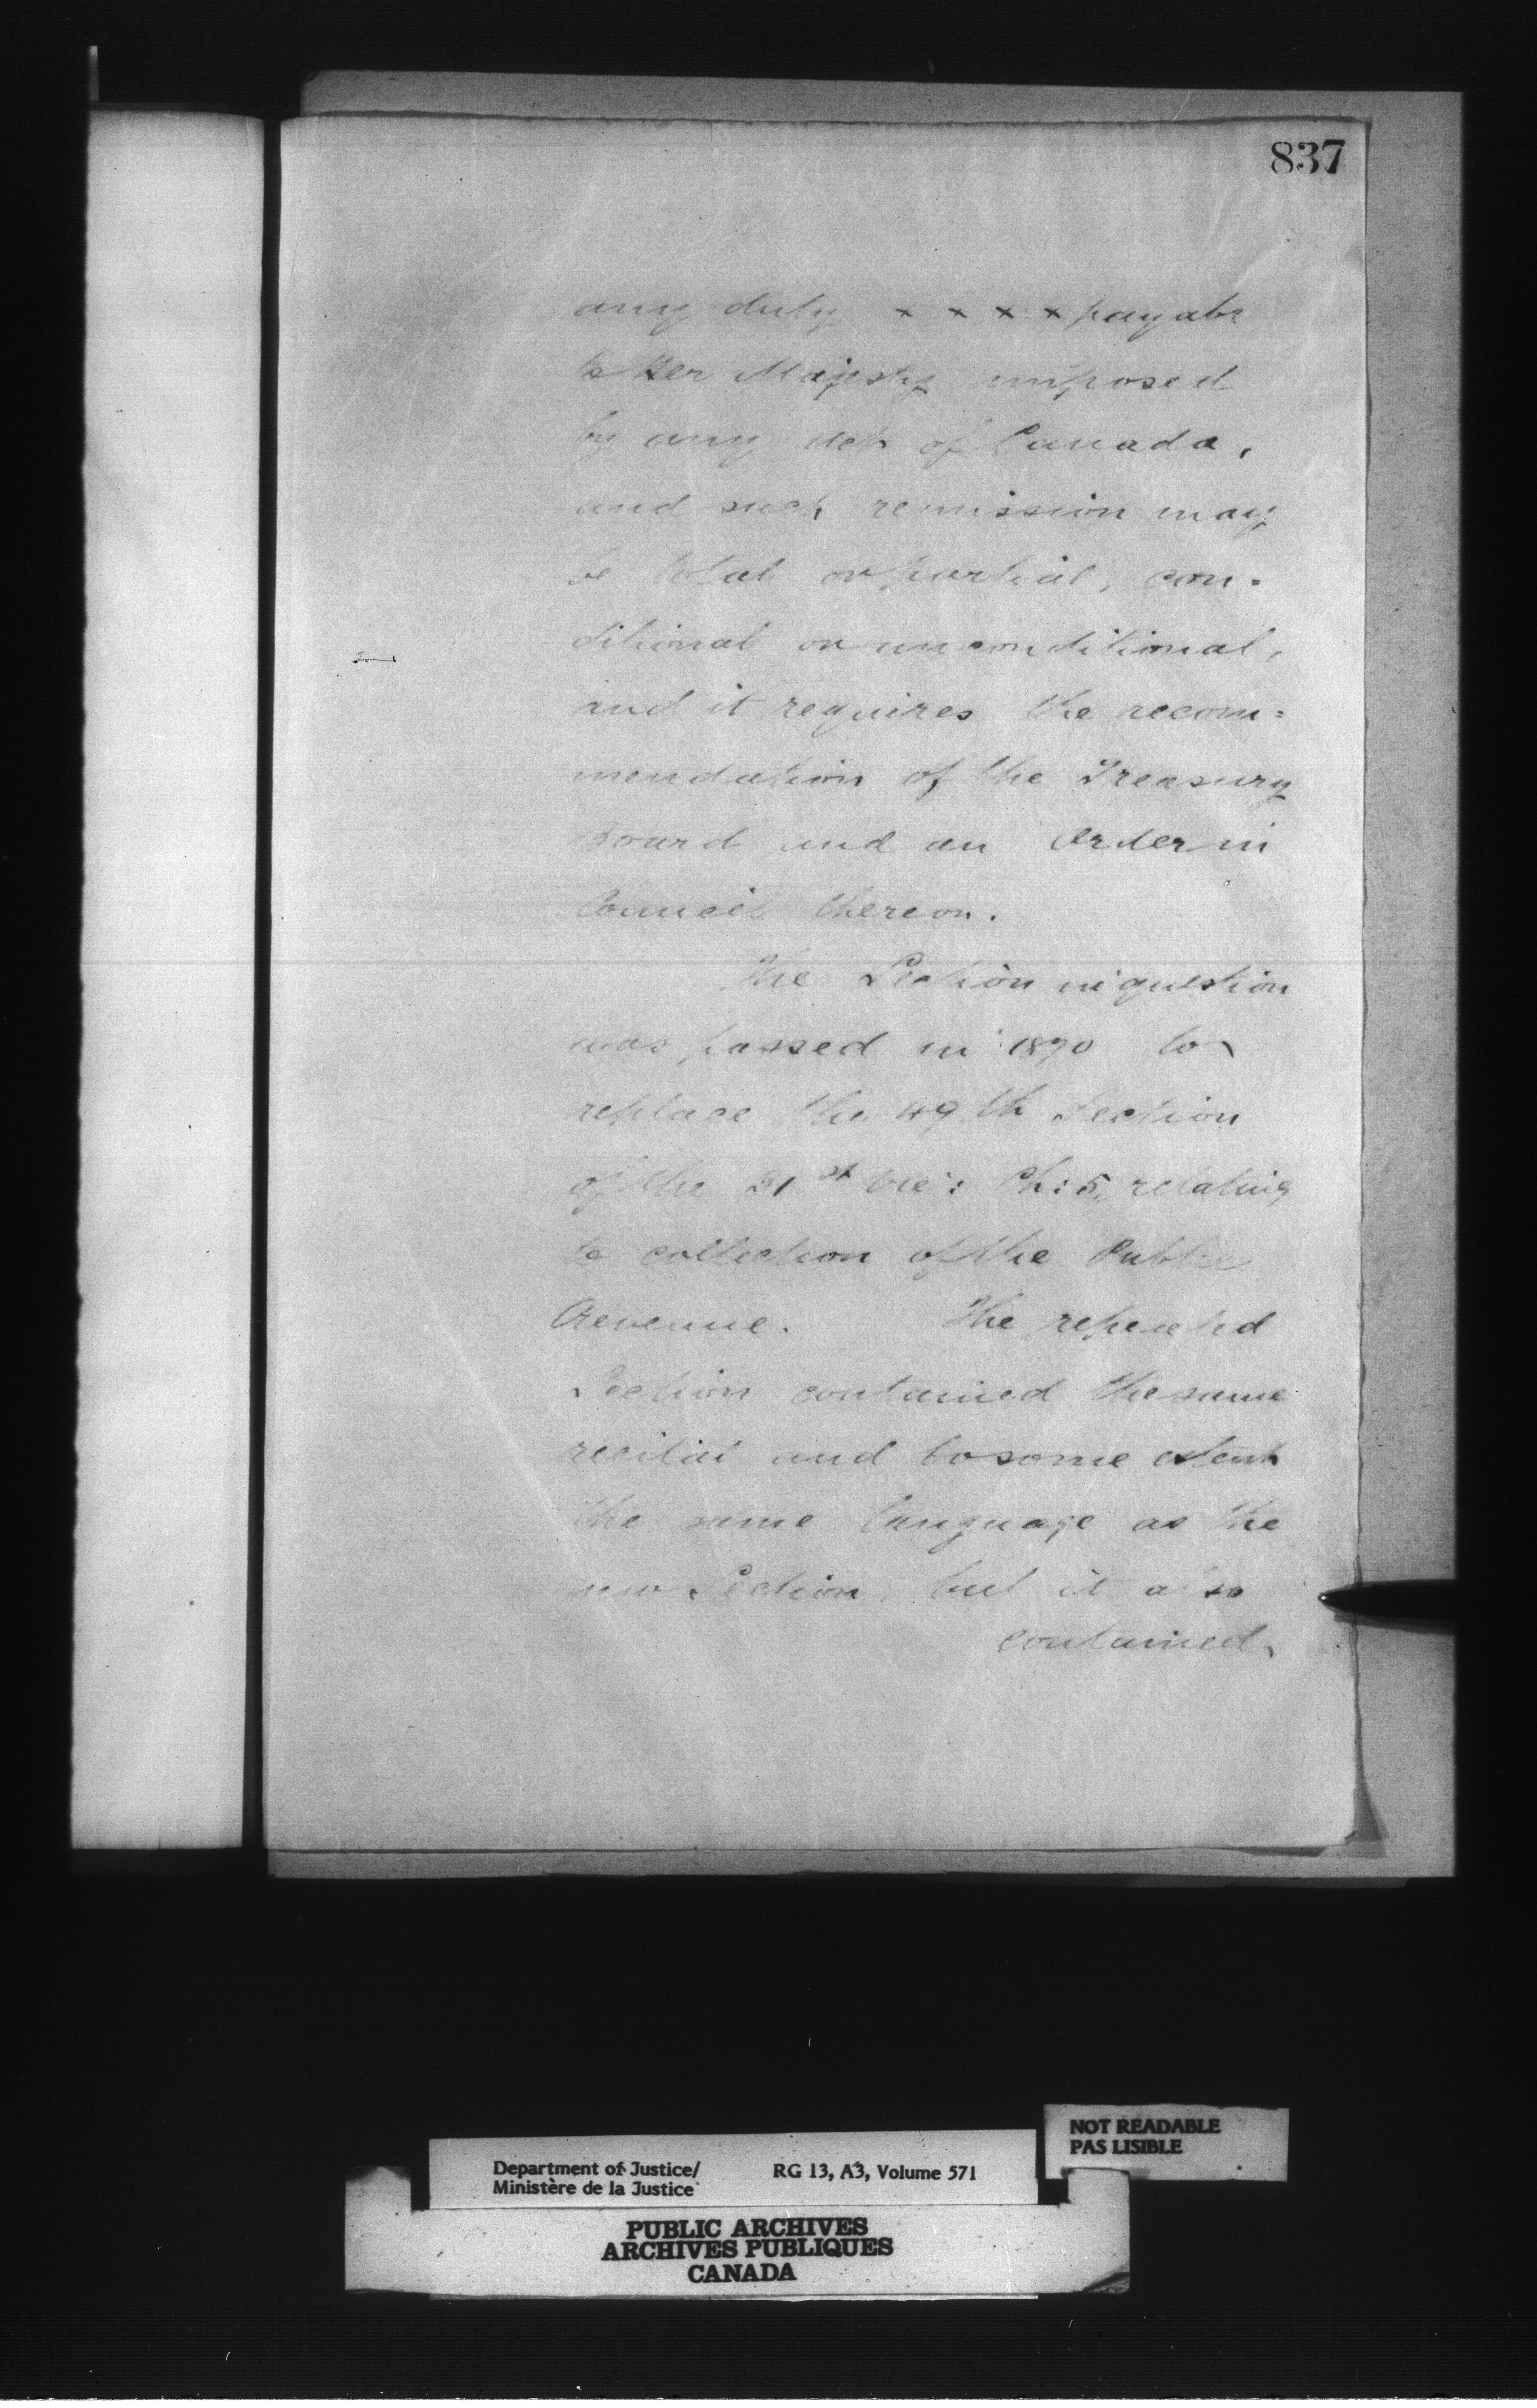 837
any duty x x x x payable
to Her Majesty imposed
by any Act of Canada,
and such remission may
be total or partial, con-
ditional or unconditional,
and it requires the recom=
mendation of the Treasury
Board and an Order in
Council thereon.
The Section in question
was passed in 1870 to
replace the 49th Section
of the 31st Vic: Ch: 5, relating
to collection of the Public
Revenue. The repealed
Section contained the same
recital and to some extent
the same language as the
new Section, but it also
contained
NOT READABLE
PAS LISIBLE
Department of Justice/
Ministère de la Justice
RG 13, A3, Volume 571
PUBLIC ARCHIVES
ARCHIVES PUBLIQUES
CANADA